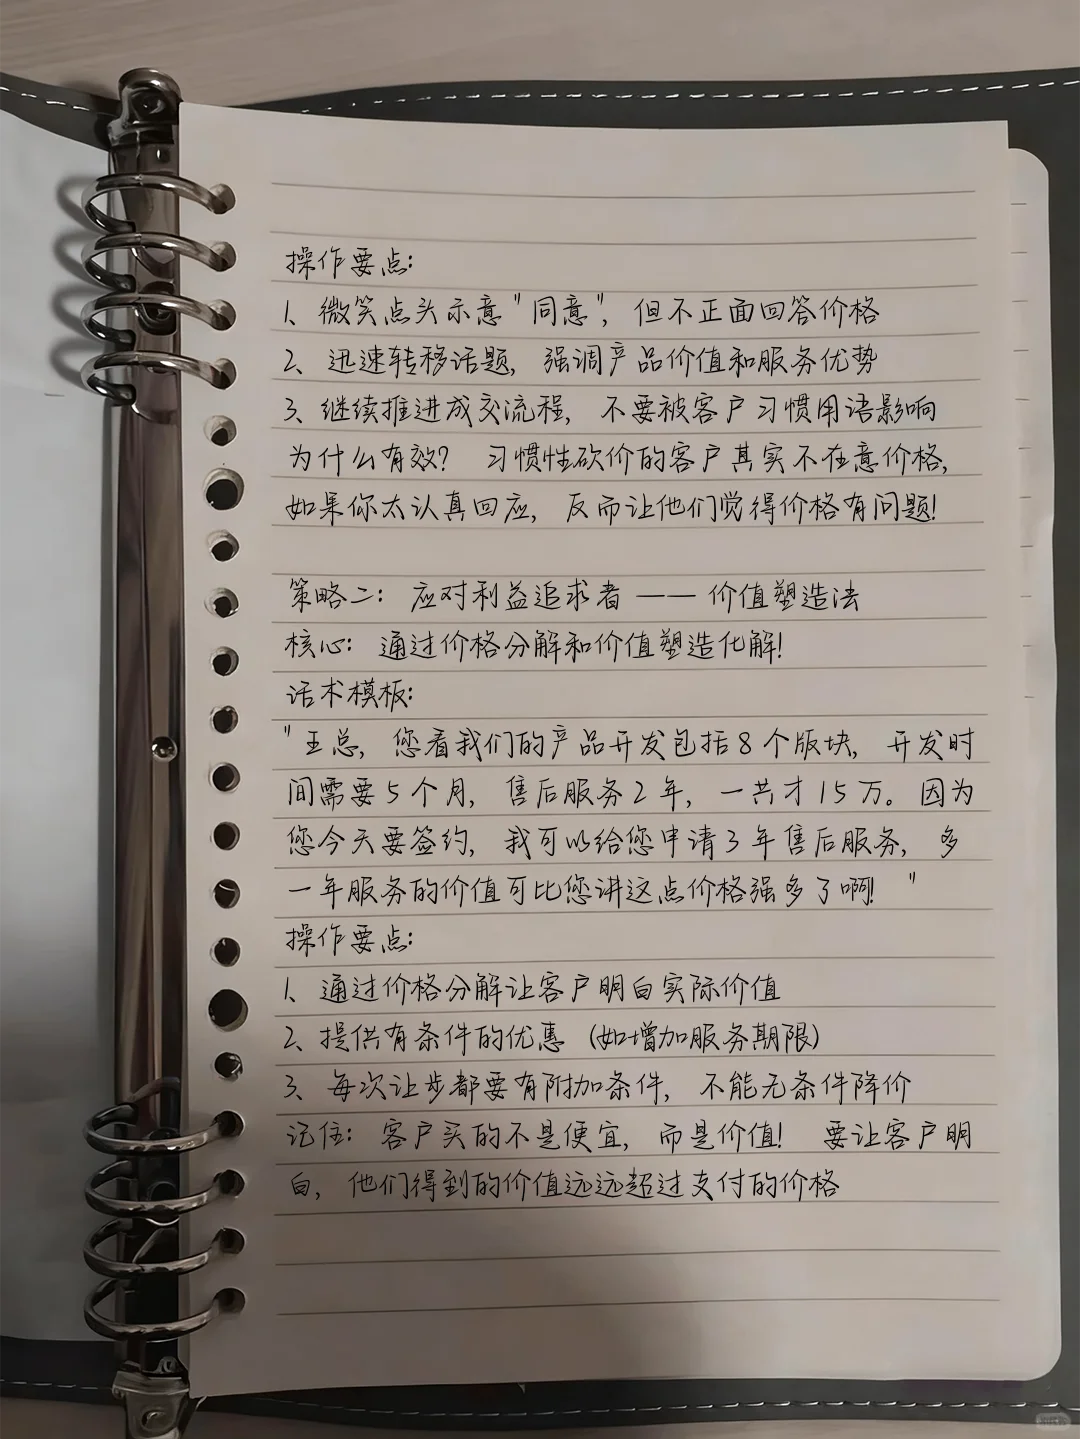 操作要点:
1、微笑点头示意"同意"，但不正面回答价格
2、迅速转移话题，强调产品价值和服务优势
3、继续推进成交流程，不要被客户习惯用语影响
为什么有效？ 习惯性砍价的客户其实不在意价格，
如果你太认真回应，反而让他们觉得价格有问题！
策略二：应对利益追求者 —— 价值塑造法
核心：通过价格分解和价值塑造化解！
话术模板:
"王总，您看我们的产品开发包括8个版块，开发时
间需要5个月，售后服务2年，一共才15万。因为
您今天要签约，我可以给您申请3年售后服务，多
一年服务的价值可比您讲这点价格强多了啊！"
操作要点:
1、通过价格分解让客户明白实际价值
2、提供有条件的优惠（如增加服务期限）
3、每次让步都要有附加条件，不能无条件降价
记住：客户买的不是便宜，而是价值！ 要让客户明
白，他们得到的价值远远超过支付的价格